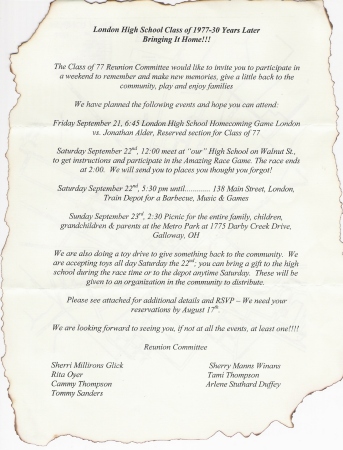 London High School Class of 1977-30 Years Later
Bringing It Home!!!
The Class of 77 Reunion Committee would like to invite you to participate in
a weekend to remember and make new memories, give a little back to the
community, play and enjoy families
We have planned the following events and hope you can attend:
Friday September 21, 6:45 London High School Homecoming Game London
vs. Jonathan Alder, Reserved section for Class of 77
Saturday September 22nd, 12:00 meet at "our" High School on Walnut St.,
to get instructions and participate in the Amazing Race Game. The race ends
at 2:00. We will send you to places you thought you forgot!
Saturday September 22nd, 5:30 pm until............. 138 Main Street, London,
Train Depot for a Barbecue, Music & Games
Sunday September 23rd, 2:30 Picnic for the entire family, children,
grandchildren & parents at the Metro Park at 1775 Darby Creek Drive,
Galloway, OH
We are also doing a toy drive to give something back to the community. We
are accepting toys all day Saturday the 22nd; you can bring a gift to the high
school during the race time or to the depot anytime Saturday. These will be
given to an organization in the community to distribute.
Please see attached for additional details and RSVP – We need your
reservations by August 17th.
We are looking forward to seeing you, if not at all the events, at least one!!!!
Reunion Committee
Sherri Millirons Glick Sherry Manns Winans
Rita Oyer Tami Thompson
Cammy Thompson Arlene Stuthard Duffey
Tommy Sanders